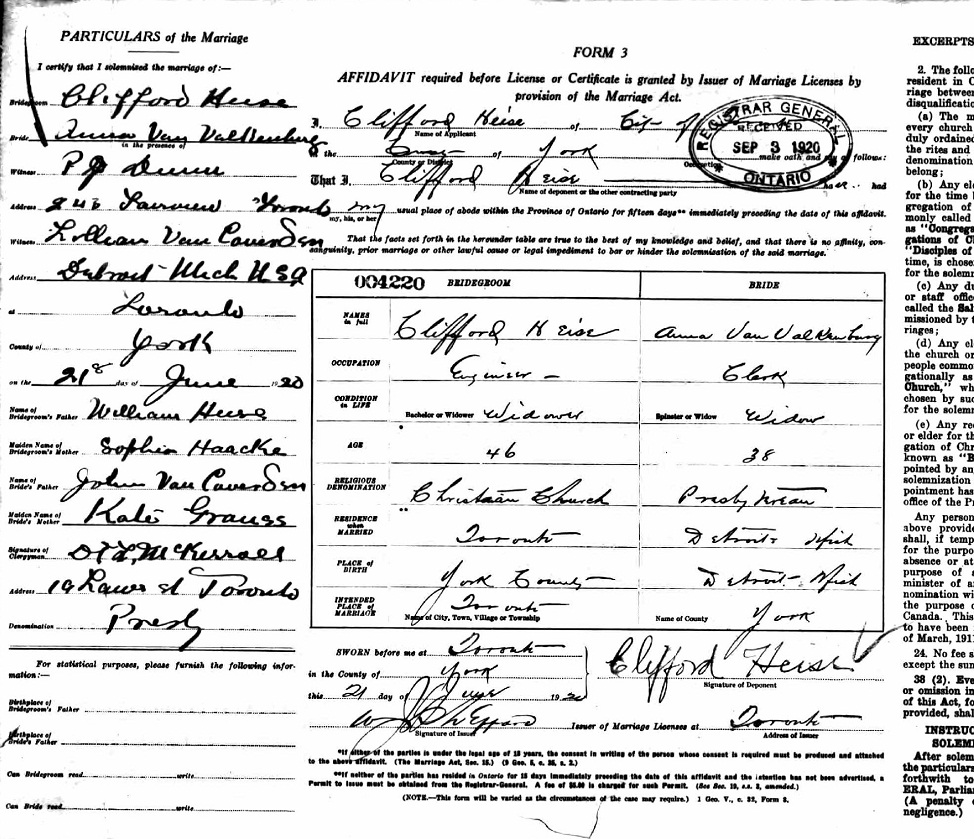 PARTICULARS of the Marriage
I certify that I solemnized the marriage of:—
Bridegroom Clifford Heise
Bride Anna Van Valkenburg
in the presence of
Witness P J Dunn
Address 246 Fairview Toronto
Witness Lillian Van Cavenden
Address Detroit Mich USA
at Toronto
County of York
on the 21st day of June 1920
Name of Bridegroom's Father William Heise
Maiden Name of Bridegroom's Mother Sophia Haacke
Name of Bride's Father John Van Cavenden
Maiden Name of Bride's Mother Kate Grauss
Signature of Clergyman McKerroll
Address 19 Laws st Toronto
Denomination Presby
For statistical purposes, please furnish the following information:—
Birthplace of Bridegroom's Father
Birthplace of Bride's Father
Can Bridegroom read write
Can Bride read write
FORM 3
AFFIDAVIT required before License or Certificate is granted by Issuer of Marriage Licenses by
provision of the Marriage Act.
I, Clifford Heise of City of
Name of Applicant
in the County of York
County or District
Occupation
make oath and say as follows:
That I, Clifford Heise had
Name of deponent or the other contracting party
my usual place of abode within the Province of Ontario for fifteen days** immediately preceding the date of this affidavit.
my, his, or her
That the facts set forth in the hereunder table are true to the best of my knowledge and belief, and that there is no affinity, con-
sanguinity, prior marriage or other lawful cause or legal impediment to bar or hinder the solemnisation of the said marriage.
REGISTRAR GENERAL
RECEIVED
SEP 3 1920
ONTARIO
004220 BRIDEGROOM BRIDE
NAMES in full Clifford Heise Anna Van Valkenburg
OCCUPATION Engineer – Clerk
CONDITION in LIFE Bachelor or Widower Widower Spinster or Widow Widow
AGE 46 38
RELIGIOUS DENOMINATION Christian Church Presbyterian
RESIDENCE when MARRIED Toronto Detroit Mich
PLACE OF BIRTH York County Detroit Mich
INTENDED PLACE of MARRIAGE Toronto York
Name of City, Town, Village or Township Name of County
SWORN before me at Toronto
in the County of York
this 21 day of June 1920
Clifford Heise
Signature of Deponent
Sheppard
Signature of Issuer
Issuer of Marriage Licenses at Toronto
Address of Issuer
*If either of the parties is under the legal age of 18 years, the consent in writing of the person whose consent is required must be produced and attached
to the above affidavit. (The Marriage Act, Sec. 15.) (9 Geo. 5, c. 35, s. 2.)
**If neither of the parties has resided in Ontario for 15 days immediately preceding the date of this affidavit and the intention has not been advertised, a
Permit to Issue must be obtained from the Registrar-General. A fee of $5.00 is charged for such Permit. (See Sec. 19, s.s. 2, amended.)
(NOTE.—This form will be varied as the circumstances of the case may require.) 1 Geo. V., c. 32, Form 3.
EXCERPTS
2. The follo
resident in C
riage between
disqualificatio
(a) The m
every church
duly ordained
the rites and
denomination
belong;
(b) Any el
for the time b
gregation of
monly called
as "Congrega
gations of Ch
"Disciples of
time, is chose
for the solemn
(c) Any du
or staff office
called the Sal
missioned by t
riages;
(d) Any el
the church or
people commo
gationally as
Church," wh
chosen by suc
for the solemn
(e) Any rec
or elder for th
gation of Chr
known as "B
pointed by an
solemnization
pointment has
office of the Pr
Any person
above provide
shall, if temp
for the purpo
absence or at
purpose of a
minister of a
nomination wi
the purpose o
Canada. This
to have been i
of March, 1911
24. No fee s
except the sum
38 (2). Eve
or omission in
of this Act, fo
provided, shal
INSTRUC
SOLEM
After solem
the particulars
forthwith to
ERAL, Parlia
(A penalty o
negligence.)